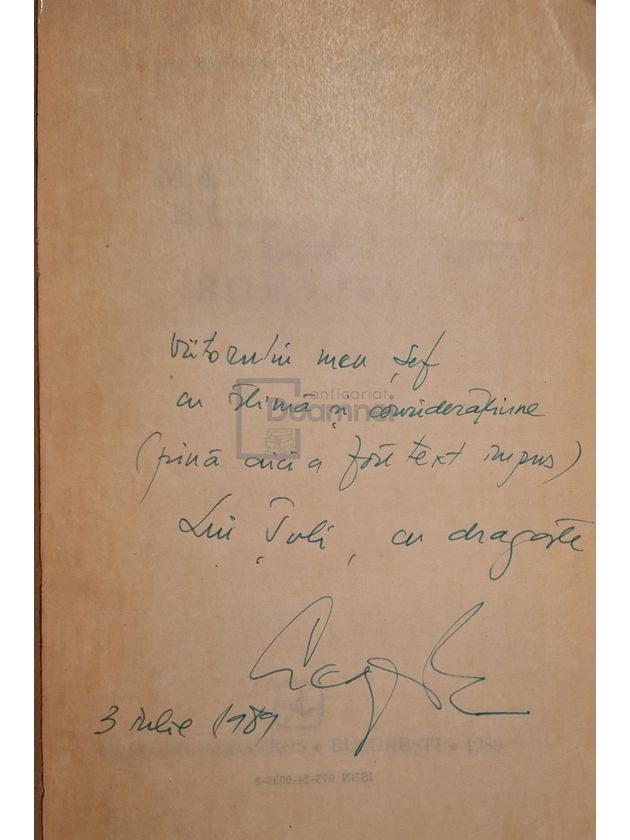 Viitorului meu șef
cu stimă și considerațiune
(pînă aici a fost text impus)
Lui Țuli, cu dragoste
3 iulie 1989
anticariat
Doamnei
ALBATROS • BUCUREȘTI • 1989
ISBN 973-24-0035-8